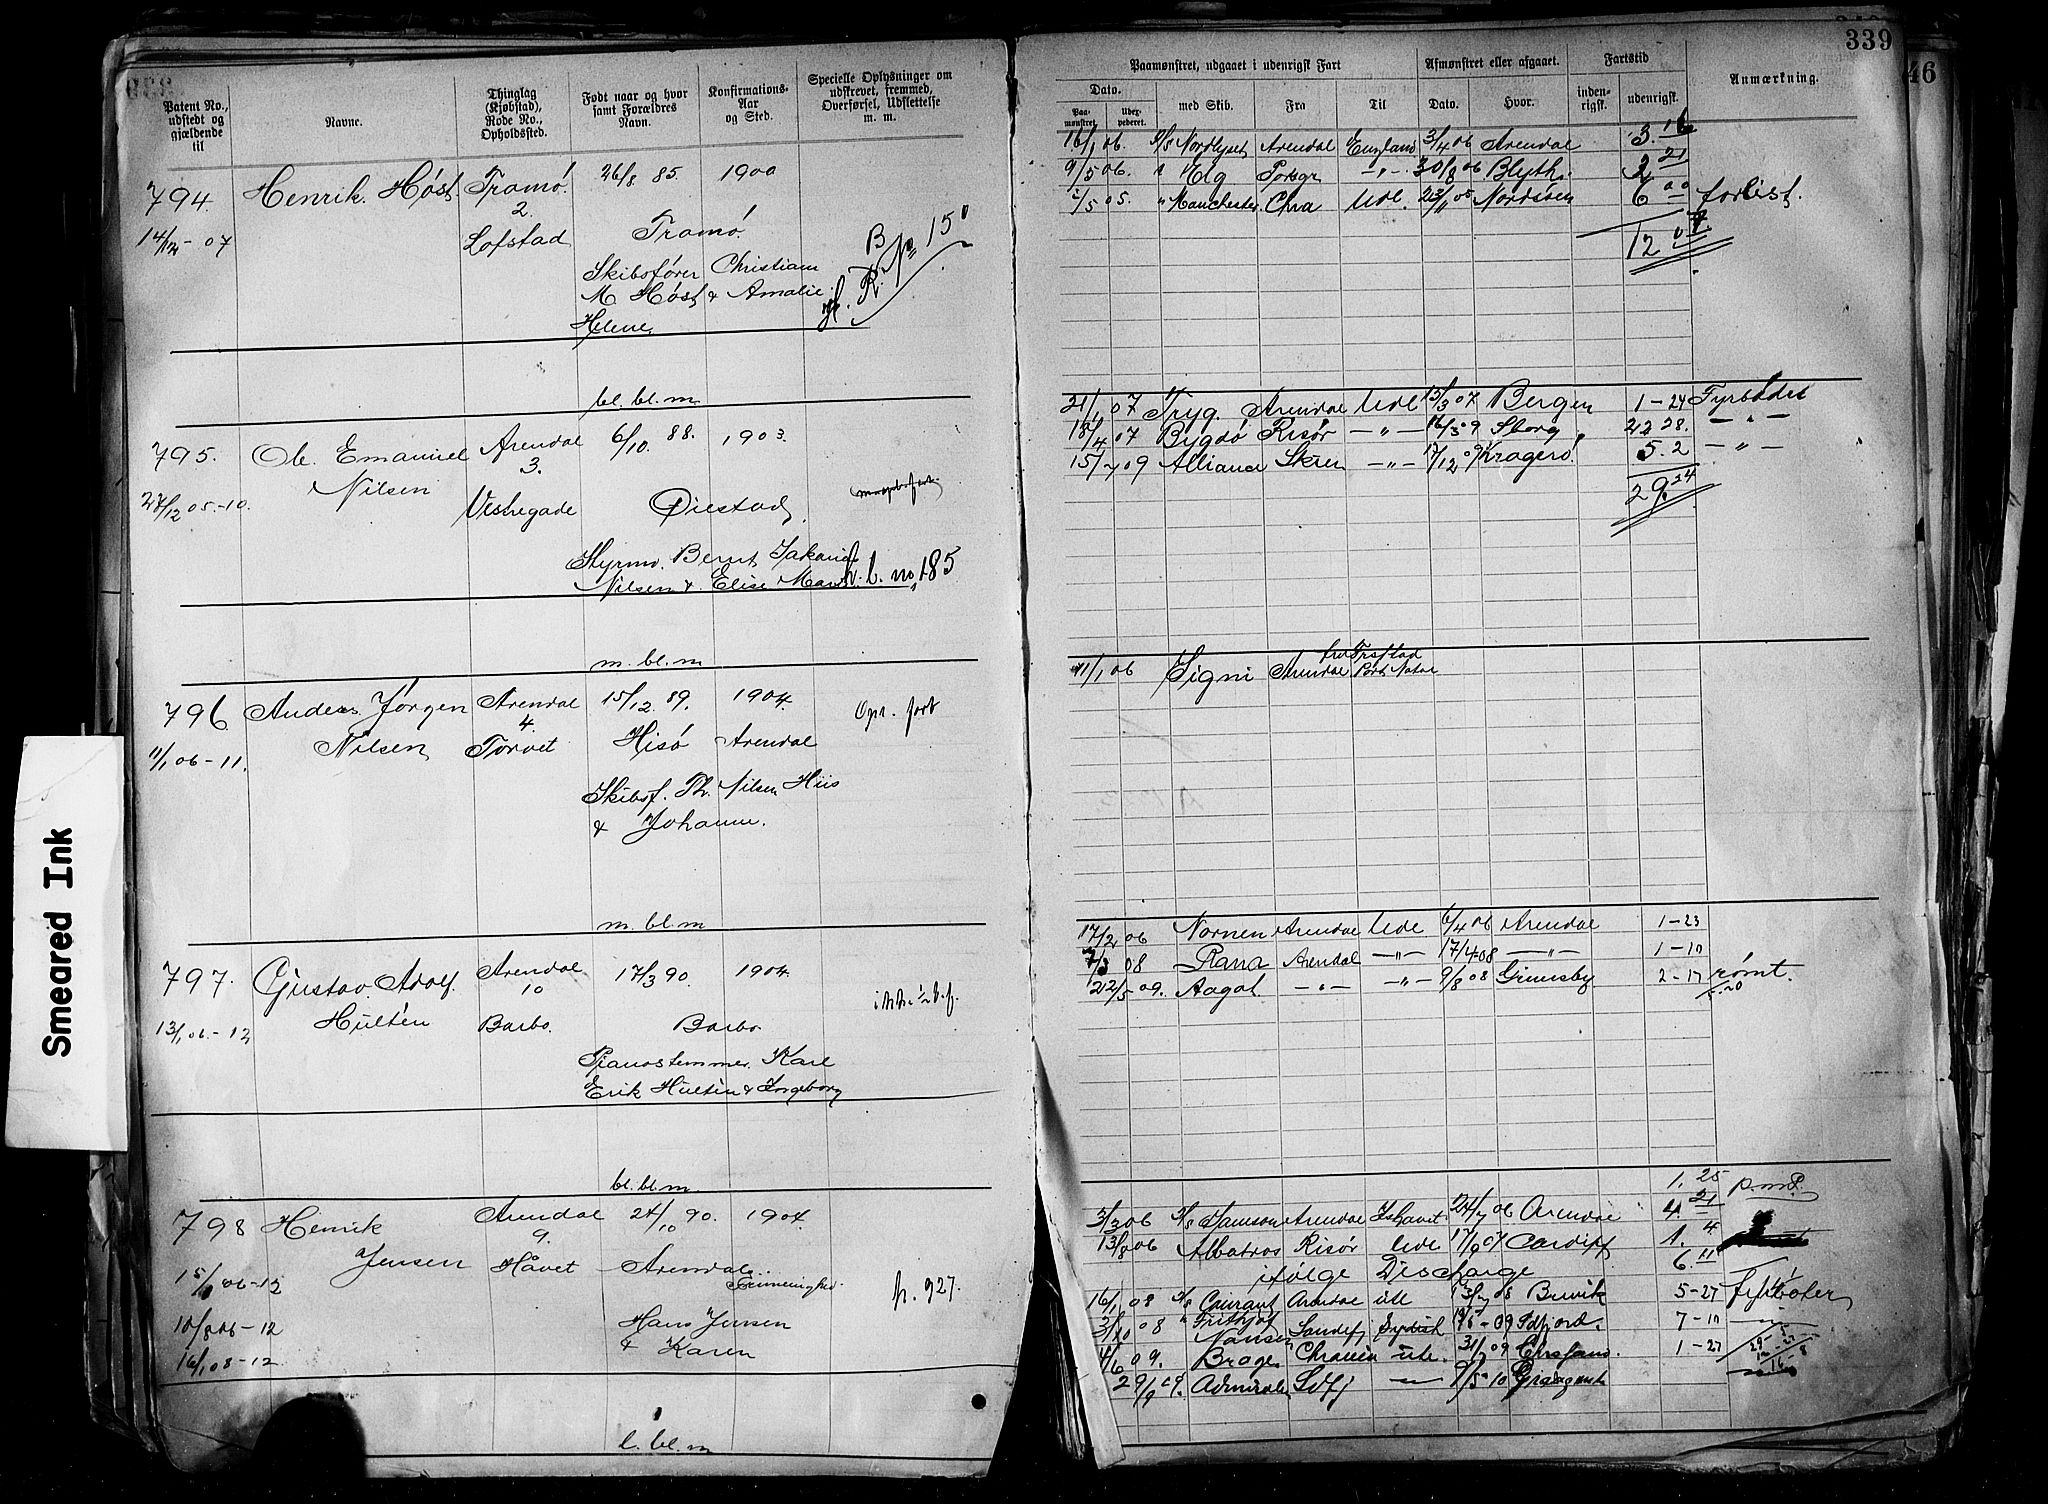 339
46
Smeared Ink
Patent No., udstedt og gjældende til
Navne.
Thinglag (Kjøbstad), Rode No., Opholdssted.
Født naar og hvor samt Forældres Navn.
Konfirmations-Aar og Sted.
Specielle Oplysninger om udskrevet, fremmed, Overførsel, Udslettelse m. m.
Paamønstret, udgaaet i udenrigsk Fart
Afmønstret eller afgaaet.
Fartstid
Anmærkning.
Dato.
Paamønstret.
Udexpederet.
med Skib.
Fra
Til
Dato.
Hvor.
indenrigsk.
udenrigsk.
794. Henrik Høst Tromø. 26/8 85. 1900
2.
14/12 - 07 Lofstad Tromø.
Skibsfører Christian
M Høst & Amalie
Helene.
bl. bl. m
16/1 06. S/S Nordlyset Arendal England 3/4 06 Arendal 3. 16
9/5 06. " Elg Porsgr -"- 30/8 06 Blyth. 3 21
5 05. " Manchester Chra Udl. 23/11 05 Nordsøen 6 00 forlist.
12 07
795. Ole Emanuel Arendal 6/10 88. 1903.
Nilsen 3.
27/12 05.-10. Vestregade Øiestad
Styrm. Bernt Zakarias
Nilsen & Elise Marie h. b. no 185
m. bl. m
21/1 07 Tryg. Arendal Udl 15/3 07 Bergen 1-24 Fyrbøder
18/4 07 Bygdø Risør -"- 16/5 09 Sborg 22 28. -"-
15/7 09 Alliance Skien -"- 17/12 09 Kragerø 5. 2 -"-
29. 24
796 Anders Jørgen Arendal 15/12 89. 1904.
Nilsen 4. Opr. fart
11/1 06-11. Torvet Hisø Arendal
Skibsf. Th. Nilsen Hiis
& Johanne.
m. bl. m
11/1 06 Signi Arendal Port Natal
797. Gustav Adolf Arendal 17/3 90. 1904.
Hultén 10
13/1 06-12 Barbo. Barbo
Pianostemmer Karl
Erik Hultén & Ingeborg
bl. bl. m.
17/2 06 Nornen Arendal Ude 6/4 06 Arendal 1-23
7/3 08 Rana Arendal -"- 17/4-08 -"- 1-10
22/5 09. Aagot. -"- -"- 9/8 08 Grimsby 2-17 rømt.
5.20
798 Henrik Arendal 24/10 90. 1904.
Jensen 9.
15/1 06-12 Håvet Arendal
p. 927.
10/8 06-12 Hans Jensen
16/1 08-12 & Karen
l. bl. m
1. 25 p.m.
3/3 06 S/S Jameson Arendal Ishavet 24/7 06 Arendal 4. 21
13/8 06 Albatros Risør Ude 17/9 07 Cardiff 1. 4
ifølge Discharge 6. 11
16/1 08 S/S Courant Arendal ude 13/7 08 Brevik 5-27 fyrbøter
3/10 08 " Frithjof Nansen Sandefj Sydish 14/5-09 Sdfjord. 7-10 -"-
4/6 09. Brage Chrania ude. 31/7 09 Chrsfans. 1-27
29/9 09. Admiralen Sdfj -"- 9/5 10